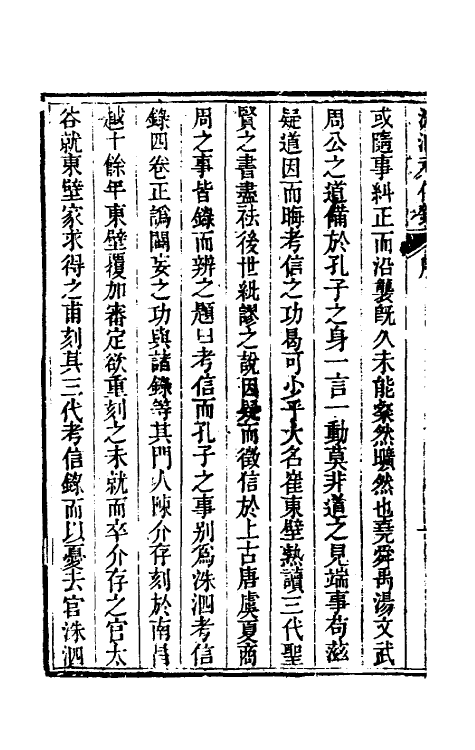 洙泗考信錄 序
或隨事糾正而沿襲旣久未能粲然曠然也堯舜禹湯文武
周公之道備於孔子之身一言一動莫非道之見端事苟滋
疑道因而晦考信之功曷可少乎大名崔東壁熟讀三代聖
賢之書盡祛後世紕謬之說因疑而徵信於上古唐虞夏商
周之事皆錄而辨之題曰考信而孔子之事別爲洙泗考信
錄四卷正譌闢妄之功與諸錄等其門人陳介存刻於南昌
越十餘年東壁覆加審定欲重刻之未就而卒介存之官太
谷就東壁家求得之甫刻其三代考信錄而以憂去官洙泗